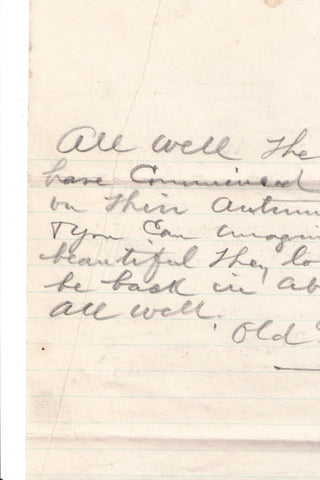 All well the
have Commenced
on their Autum
& you Can imagin
beautiful they lo
be back in ab
all well.
Old